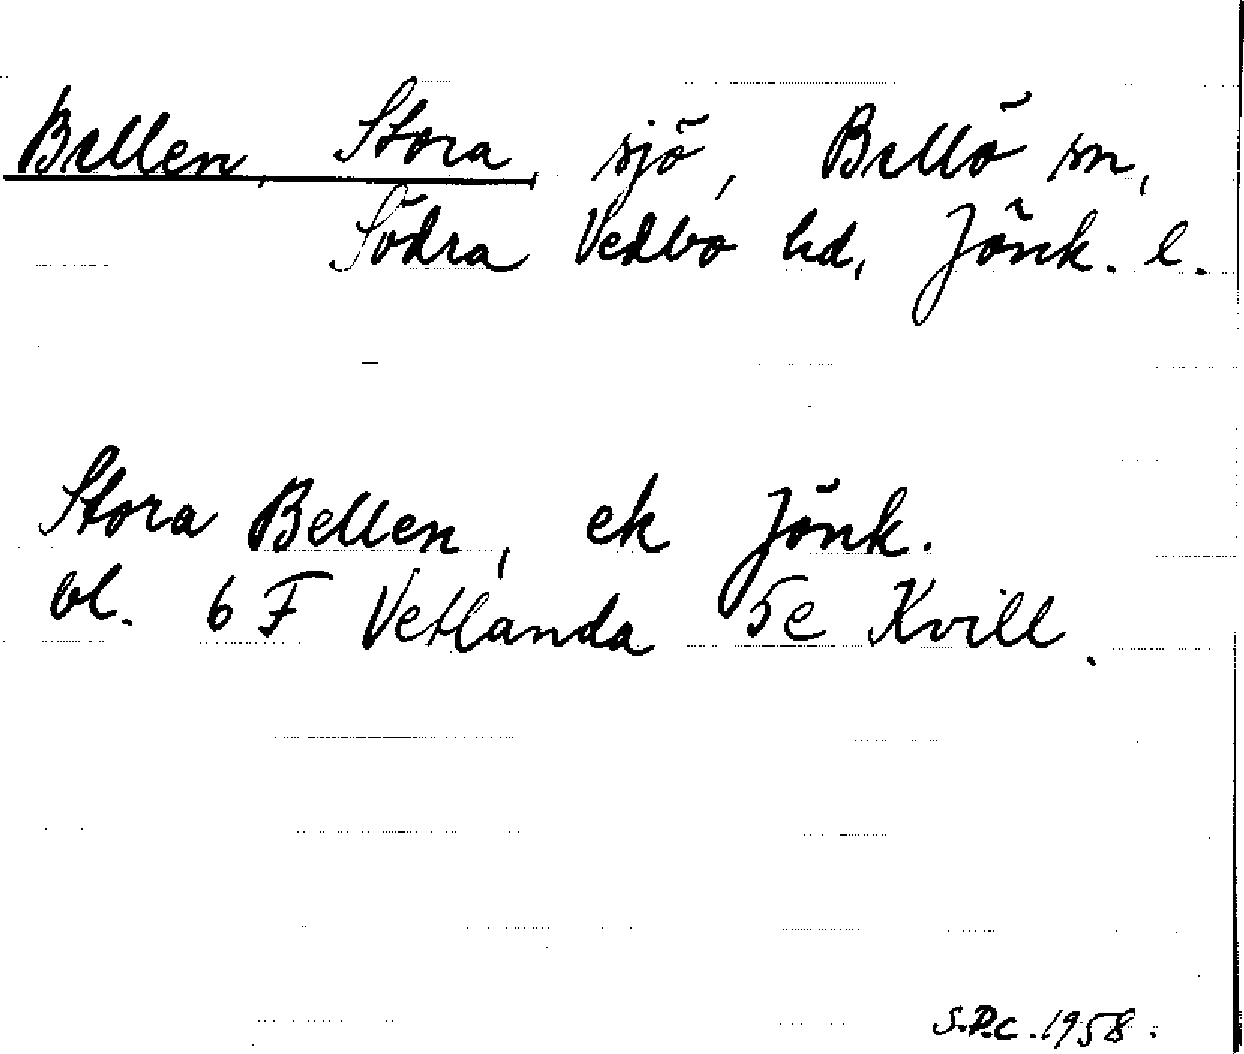 Bellen, Stora, sjö, Bellö sn,
Södra Vedbo hd, Jönk. l.
Stora Bellen, ek Jönk.
bl. 6 F Vetlanda 5e Kvill.
S.P.C. 1958.